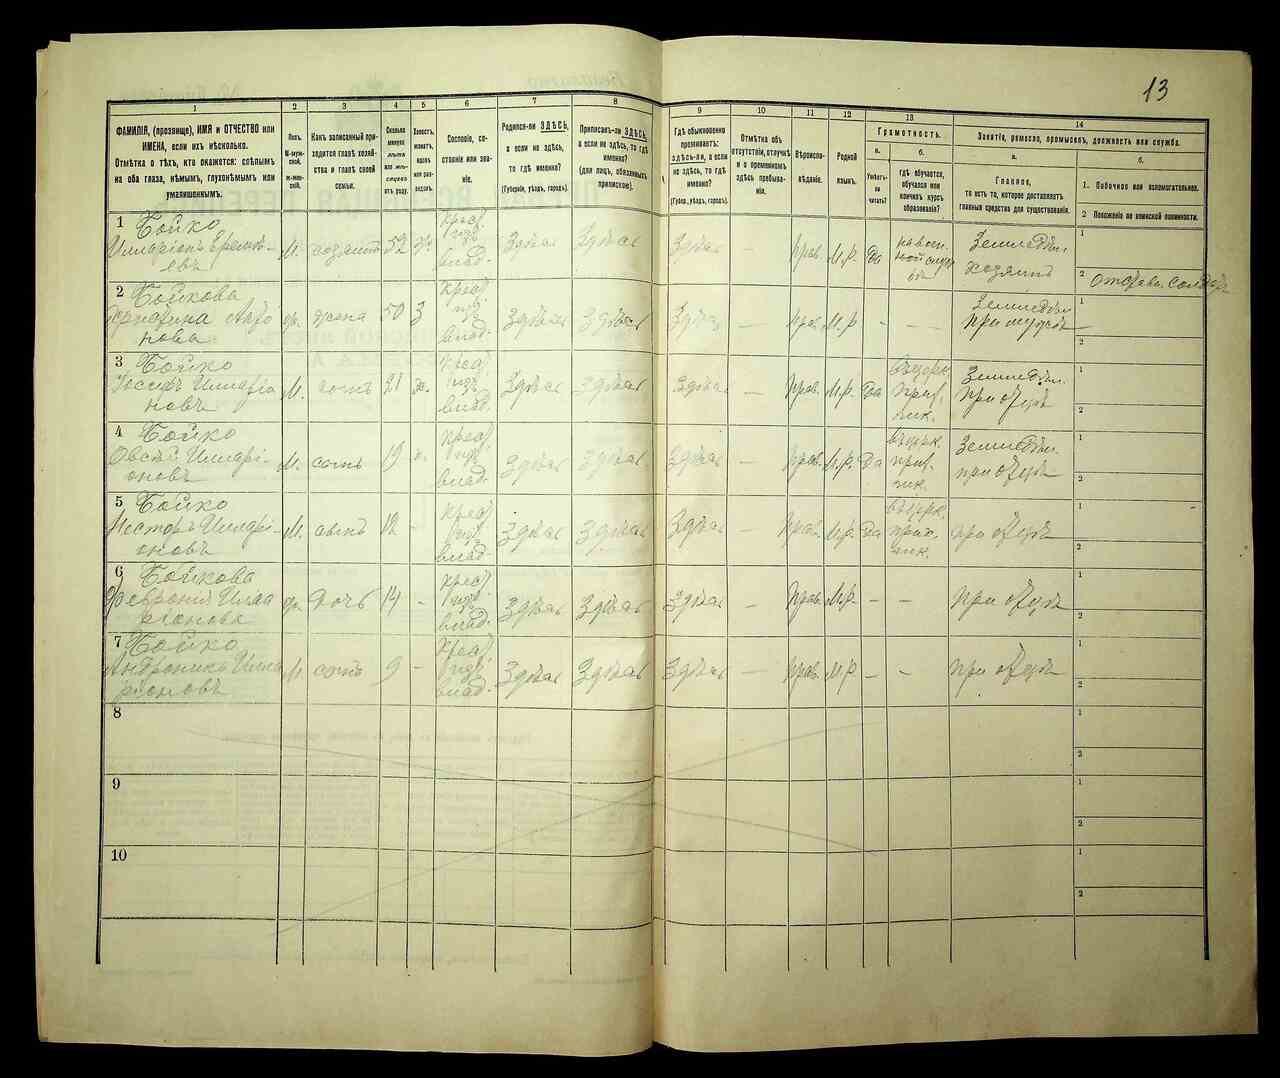 13
1
2
3
4
5
6
7
8
9
10
11
12
13
14
ФАМИЛІЯ, (прозвище), ИМЯ и ОТЧЕСТВО или
ИМЕНА, если ихъ нѣсколько.
Отмѣтка о тѣхъ, кто окажется: слѣпымъ
на оба глаза, нѣмымъ, глухонѣмымъ или
умалишеннымъ.
Полъ.
М-муж-
ской.
ж-жен-
скій.
Какъ записанный при-
ходится главѣ хозяй-
ства и главѣ своей
семьи.
Сколько
минуло
лѣтъ
или мѣ-
сяцевъ
отъ роду.
Холостъ,
женатъ,
вдовъ
или раз-
веденъ.
Сословіе, со-
стояніе или зва-
ніе.
Родился-ли ЗДѢСЬ,
а если не здѣсь,
то гдѣ именно?
(Губернія, уѣздъ, городъ).
Приписанъ-ли ЗДѢСЬ,
а если не здѣсь, то гдѣ
именно?
(для лицъ, обязанныхъ
припискою).
Гдѣ обыкновенно
проживаетъ:
здѣсь-ли, а если
не здѣсь, то гдѣ
именно?
(Губер., уѣздъ, городъ).
Отмѣтка объ
отсутствіи, отлучкѣ
и о временномъ
здѣсь пребыва-
ніи.
Вѣроиспо-
вѣданіе.
Родной
языкъ.
Грамотность.
а.
Умѣетъ-
ли
читать?
б.
Гдѣ обучается,
обучался или
кончилъ курсъ
образованія?
Занятіе, ремесло, промыселъ, должность или служба.
а.
Главное,
то есть то, которое доставляетъ
главныя средства для существованія.
б.
1. Побочное или вспомогательное.
2 Положеніе по воинской повинности.
1
Бойко
Илларіонъ Еремѣ-
евъ
М.
хозяинъ
52
ж.
крест.
влад.
Здѣсь
Здѣсь
Здѣсь
—
прав.
М.р.
Да
на воен-
ной служ
бѣ
Земледѣл.
хозяинъ
1
2 отстав. солдатъ
2
Бойкова
нова
ж.
жена
50
З
крест.
влад.
Здѣсь
Здѣсь
Здѣсь
—
прав.
М.р
-
-
Земледѣл.
при мужѣ
1
2
3
Бойко
Іосифъ Илларіо
новъ
М.
сынъ
21
ж.
крест.
влад.
Здѣсь
Здѣсь
Здѣсь
—
прав.
М.р.
Да
Земледѣл.
при отцѣ
1
2
4
Бойко
Овсѣй Иллари-
оновъ
М.
сынъ
19
х.
крест.
влад.
Здѣсь
Здѣсь
Здѣсь
—
прав.
М.р.
Да
Земледѣл.
при отцѣ
1
2
5
Бойко
Несторъ Иллари-
оновъ
М.
сынъ
12
-
крест.
влад.
Здѣсь
Здѣсь
Здѣсь
—
прав.
М.р.
Да
при отцѣ
1
2
6
Бойкова
Февронія Илла
ріонова
ж.
дочь
14
-
крест.
влад.
Здѣсь
Здѣсь
Здѣсь
—
прав.
М.р.
-
-
при отцѣ
1
2
7
Бойко
Андроникъ Илла
ріоновъ
М.
сынъ
9
-
крест.
влад.
Здѣсь
Здѣсь
Здѣсь
—
прав.
М.р.
-
-
при отцѣ
1
2
8
1
2
9
1
2
10
1
2